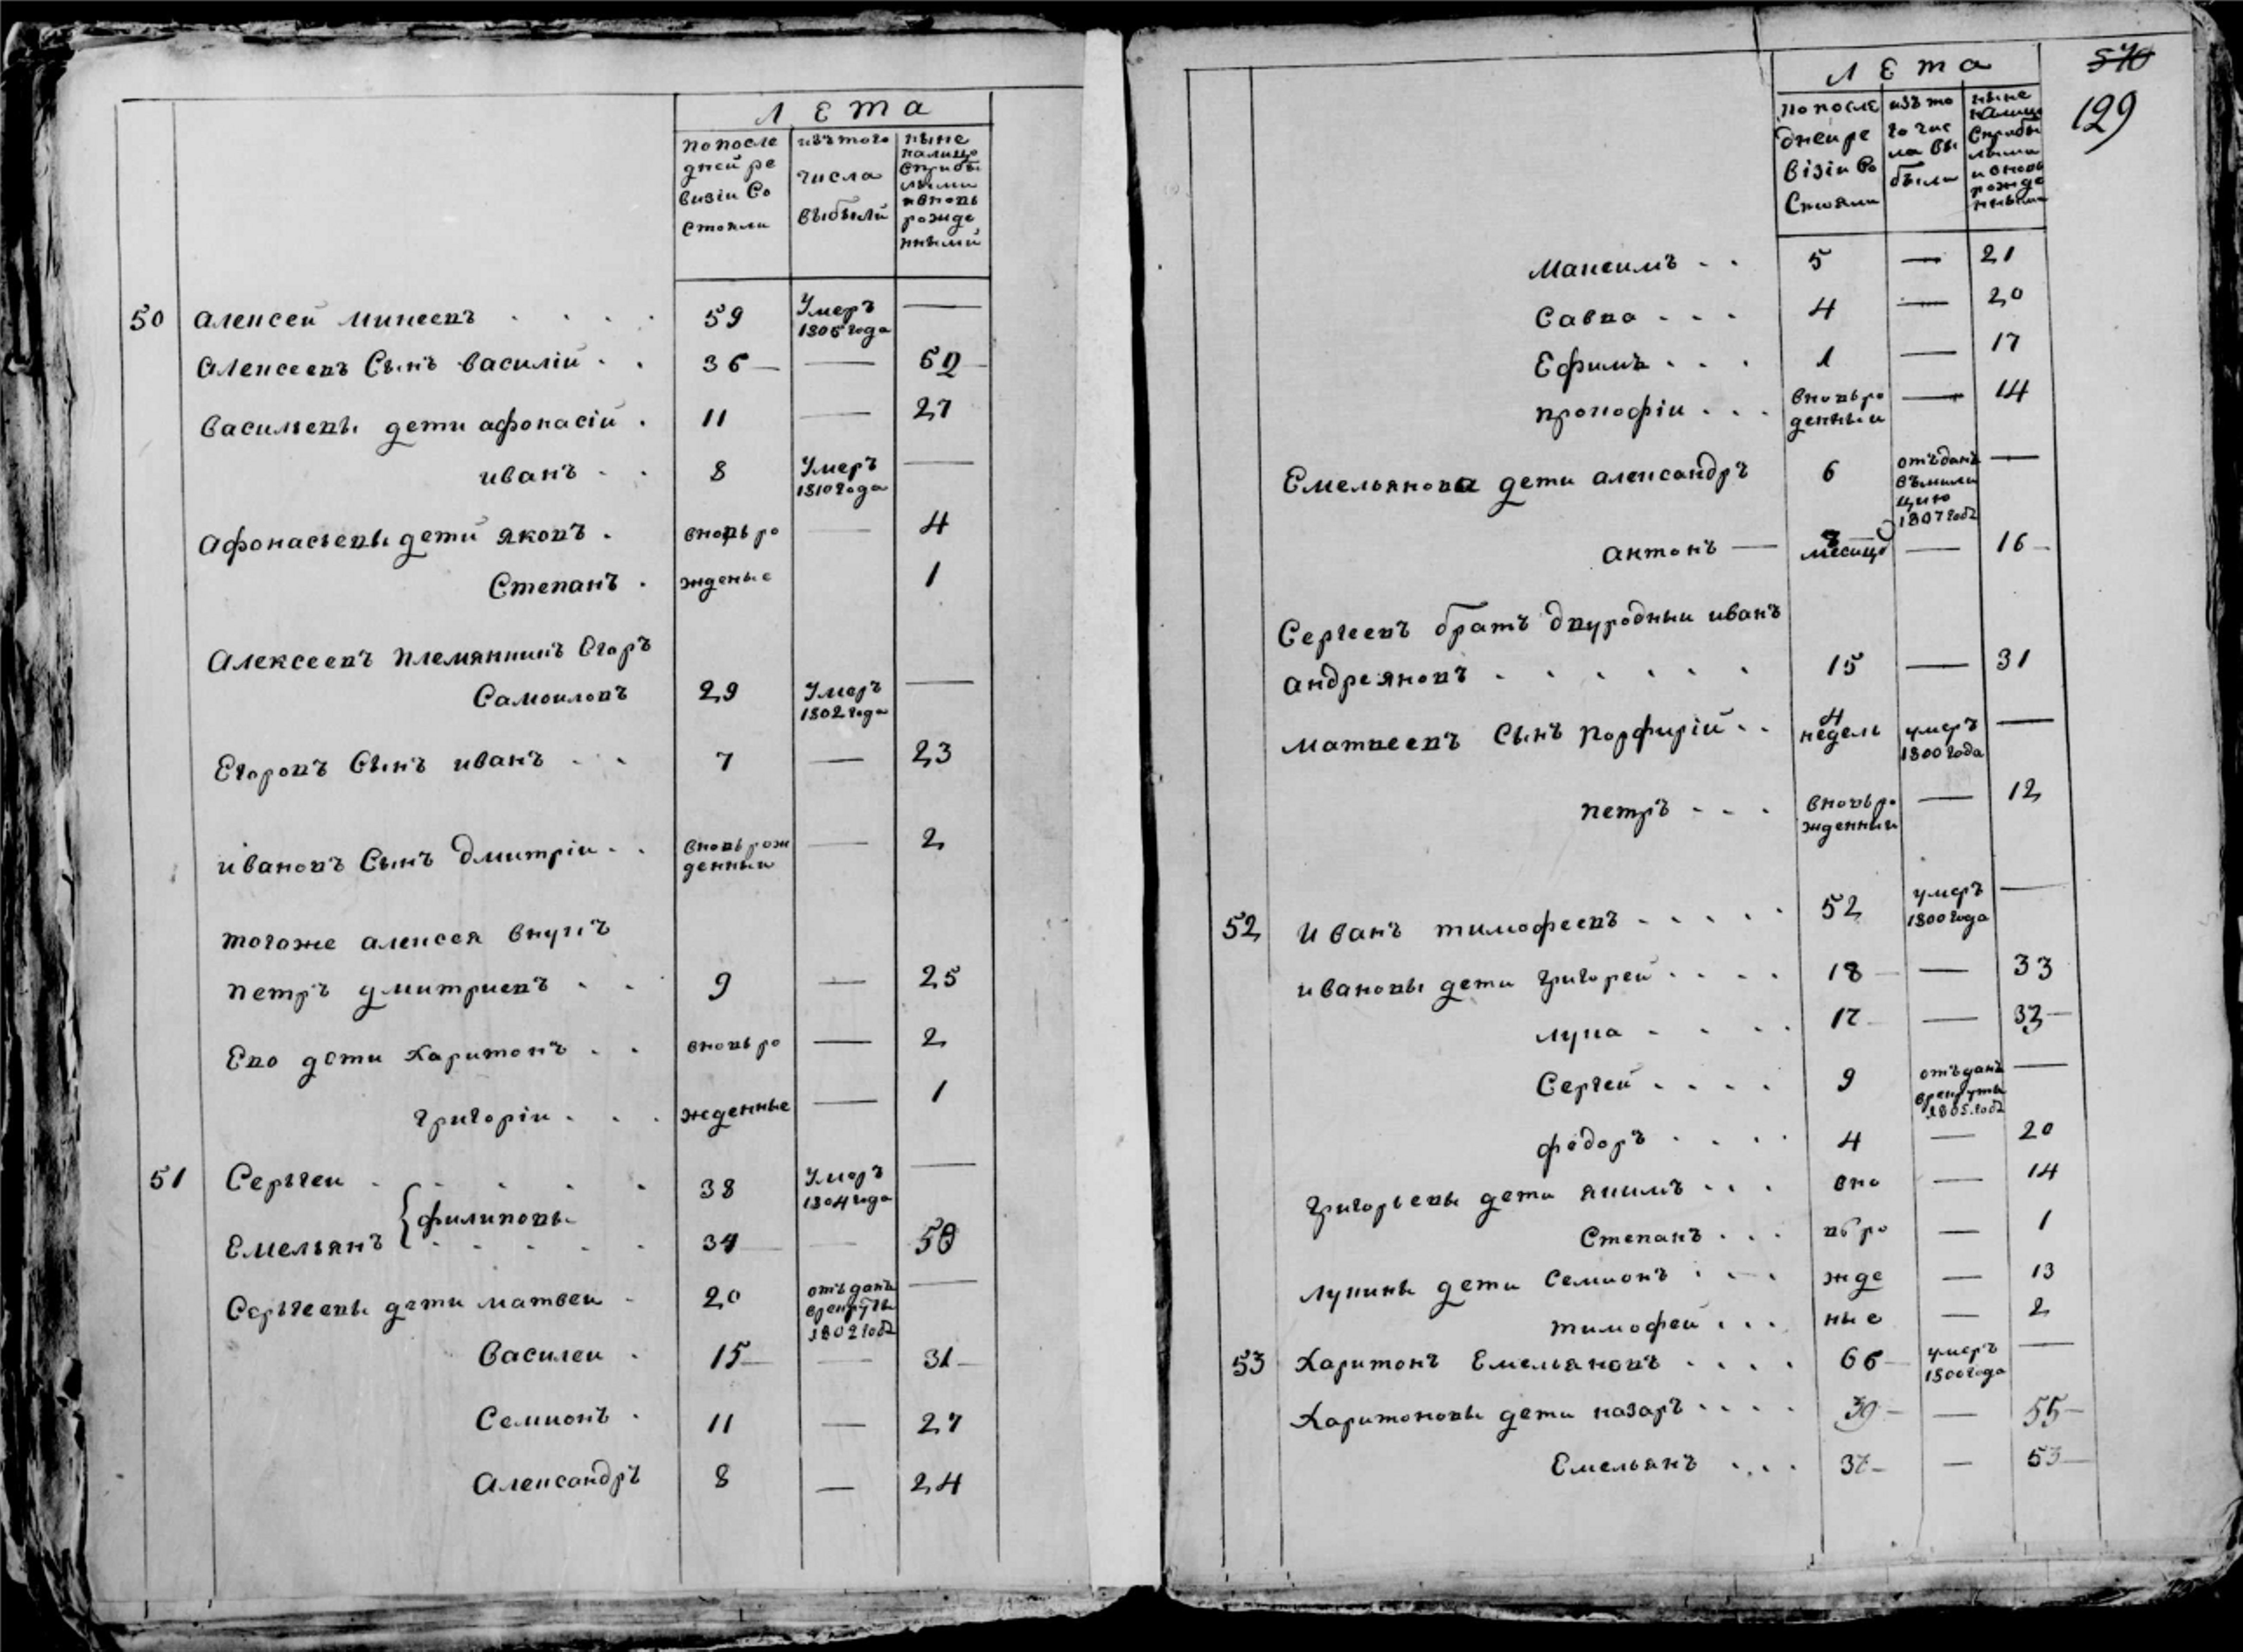 Лета
по после
дней ре
визiи Со
стояли
изътого
числа
выбыли
ныне
налицо
Сприбы
лыми
ивновь
рожде
нными
50 Алексеи минеевъ . . . . 59 Умеръ —
1805 года
Алексеевъ Сынъ василiй . . 36 — — 52 —
васильевы дети афонасiй . 11 — 27
иванъ . . 8 Умеръ —
1810 года
Афонасьевы дети яковъ . вновь ро — 4
Степанъ . жденые 1
Алексеевъ племянникъ Егоръ
Самоиловъ 29 Умеръ —
1802 года
Егоровъ Сынъ иванъ . . . 7 — 23
ивановъ Сынъ дмитрiи . . вновь рож — 2
денныи
тогоже алексея внукъ
петръ дмитриевъ . . 9 — 25
Ево дети харитонъ . . вновь ро — 2
григорiи . . . жденные — 1
51 Серьгеи . . . . . 38 Умеръ —
1804 года
{филиповы
Емельянъ . . . . . 34 — — 50
Серьгеевы дети матвеи . 20 отъданъ —
врекруты
1802 годȣ
василеи . 15 — — 31 —
Семионъ . 11 — 27
Александръ 8 — 24
570
129
Лета
по после
днеи ре
вiзiи Со
Стояли
изъ то
го чис
ла вы
были
ныне
налицо
Сприбы
лыми
и вновь
рожде
нными
Максимъ . . 5 — 21
Савва . . . 4 — 20
Ефимъ . . . 1 — 17
прокофiи . . . вновь ро — 14
денныи
Емельянова дети александръ 6 отъданъ —
въмили
цию
1807 годȣ
антонъ — 8 — 16 —
месяцо
Сергеевъ братъ двуродныи иванъ
андреяновъ . . . . . . 15 — 31
матвеевъ Сынъ порфирiй . . 4 умеръ —
недель 1800 года
петръ . . . вновь ро — 12
жденныи
52 Иванъ тимофеевъ . . . . . 52 умеръ —
1800 года
ивановы дети григореи . . . . 18 — — 33
лука . . . . 17 — — 33 —
Сергеи . . . . 9 отъданъ —
врекруты
1805 годȣ
федоръ . . . . 4 — 20
григорьевы дети якимъ . . . вно — 14
Степанъ . . . вь ро — 1
лукины дети Семионъ . . . жде — 13
тимофеи . . . ные — 2
53 Харитонъ Емельяновъ . . . . 66 — умеръ —
1800 года
Харитоновы дети назаръ . . . . 39 — — 55 —
Емельянъ . . . . 37 — — 53 —